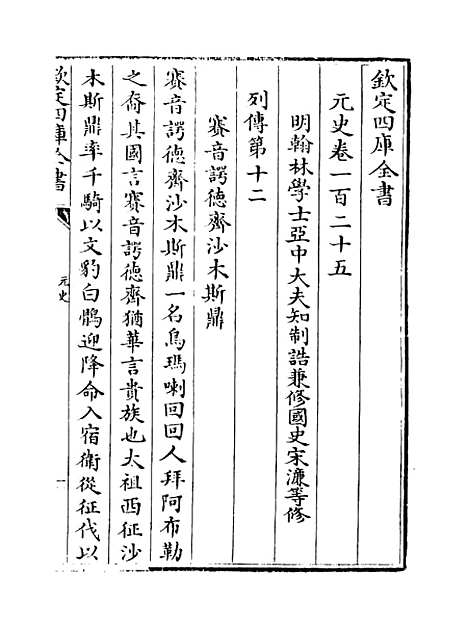 欽定四庫全書
元史卷一百二十五
明翰林學士亞中大夫知制誥兼修國史宋濂等修
列傳第十二
賽音諤德齊沙木斯鼎
賽音諤德齊沙木斯鼎一名烏瑪喇回回人拜阿布勒
之裔其國言賽音諤德齊猶華言貴族也太祖西征沙
木斯鼎率千騎以文豹白鶻迎降命入宿衛從征伐以
欽定四庫全書
元史
一